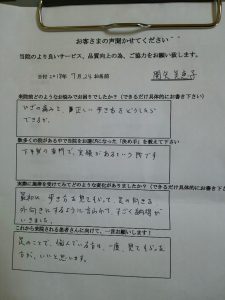 お客さまの声聞かせてください
当院のより良いサービス、品質向上の為、ご協力をお願い致します。
日付 2018年 7月24 お名前
来院前どのようなお悩みでお困りでしたか？（できるだけ具体的にお書き下さい）
ひざの痛みと、正しい歩き方をどうしたら
できるか。
数多くの院がある中で当院をお選びになった「決め手」を教えて下さい
下半身の専門で、実績があるという所です
実際に施術を受けてみてどのような変化がありましたか？（できるだけ具体的にお書き下さい）
最初に、歩き方を見てもらって、足の向きを
外向きにするように言われて、すごく納得が
いきました。
これから来院される患者さんに向けて、一言お願いします！
足のことで、悩んでいる方は、一度、見てもらった
方が、いいと思います。